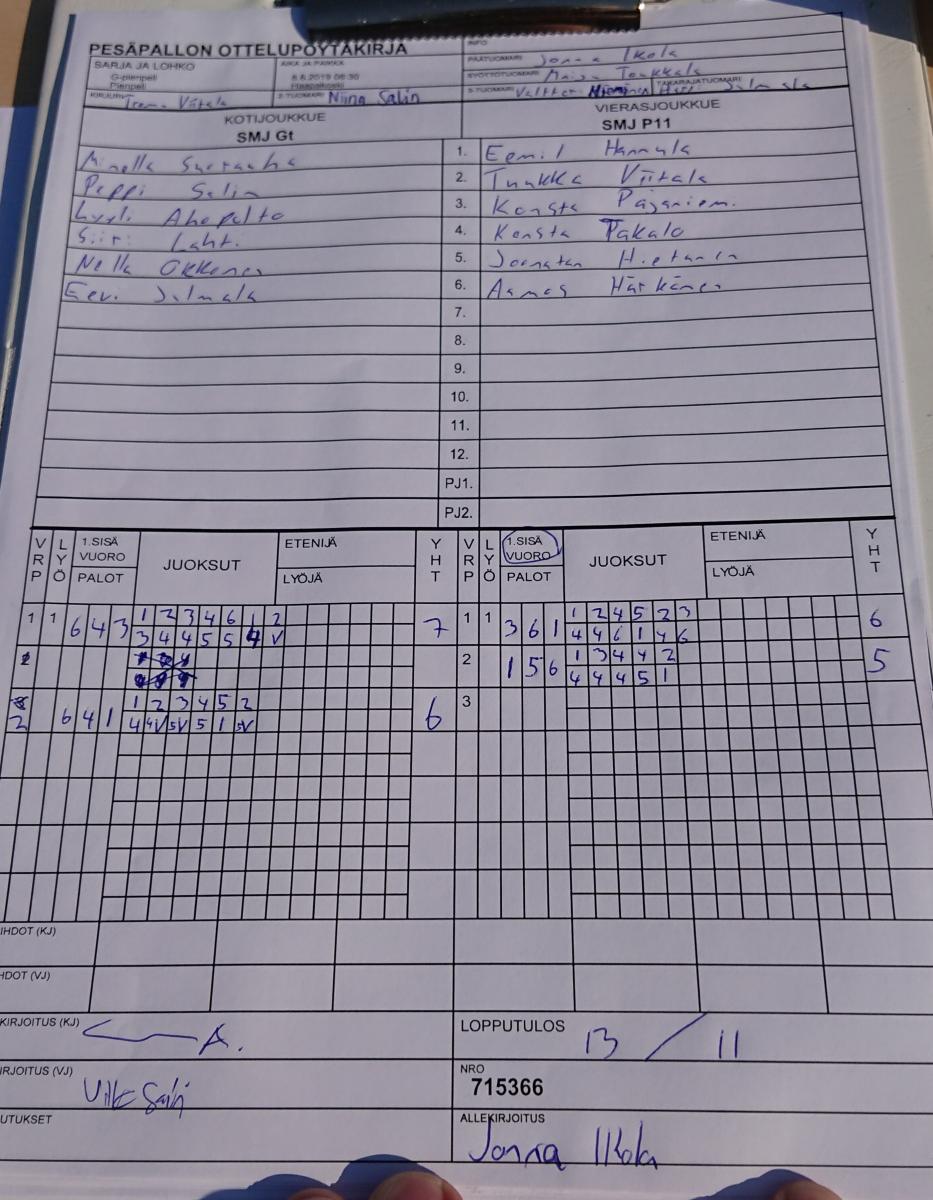 PESÄPALLON OTTELUPÖYTÄKIRJA
INFO
SARJA JA LOHKO
G-pienpeli
Pienpeli
AIKA JA PAIKKA
8.6.2019 08:30
Haapakoski
PÄÄTUOMARI Jonna Ikola
SYÖTTÖTUOMARI Maija Toukkala
KIRJURI Irena Viitala
2-TUOMARI Niina Salin
3-TUOMARI Valtteri Nieminen TAKARAJATUOMARI Jalmala
KOTIJOUKKUE
SMJ Gt
VIERASJOUKKUE
SMJ P11
Minella 1. Eemil Hannula
Peppi Salin 2. Tuukka Viitala
Lyyli Ahopelto 3. Konsta Pajaniemi
Siiri Lahti 4. Konsta Pakalo
Nella Okkonen 5. Joonatan Hietanen
Eevi Jalmala 6. Aamos Härkönen
7.
8.
9.
10.
11.
12.
PJ1.
PJ2.
VRP LYÖ 1.SISÄ VUORO PALOT JUOKSUT ETENIJÄ LYÖJÄ YHT VRP LYÖ 1.SISÄ VUORO PALOT JUOKSUT ETENIJÄ LYÖJÄ YHT
1 1 6 4 3 1 2 3 4 6 1 2 7 1 1 3 6 1 1 2 4 5 2 3 6
3 4 4 5 5 4 V 4 4 6 1 4 6
2 1 5 6 1 3 4 4 2 5
4 4 4 5 1
2 6 4 1 1 2 3 4 5 2 6 3
4 4V 5V 5 1 5V
IHDOT (KJ)
HDOT (VJ)
KIRJOITUS (KJ)
LOPPUTULOS 13 / 11
IRJOITUS (VJ)
NRO
715366
UTUKSET
ALLEKIRJOITUS
Jonna Ikola